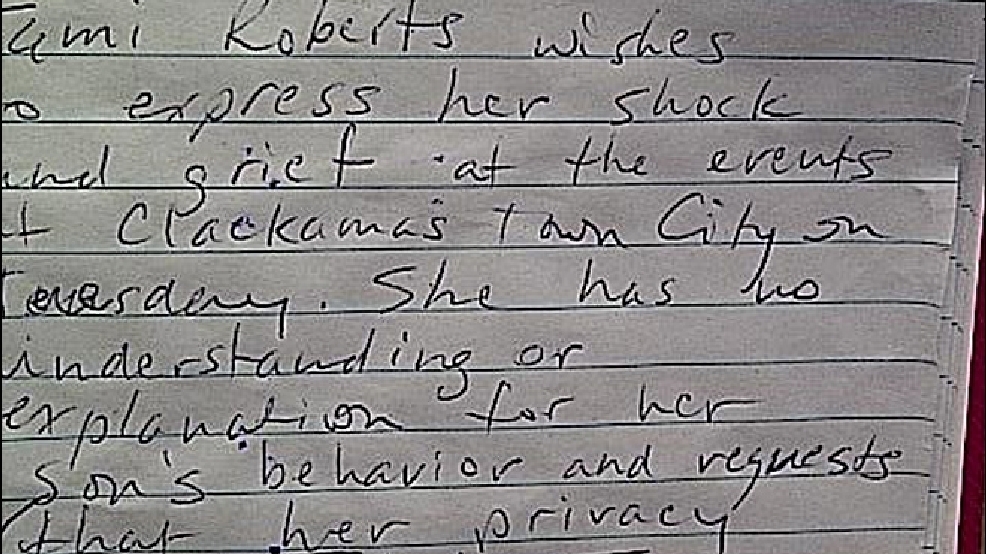 Tami Roberts wishes
to express her shock
and grief at the events
at Clackamas Town City on
Teuesday. She has no
understanding or
explanation for her
son's behavior and requests
that her privacy